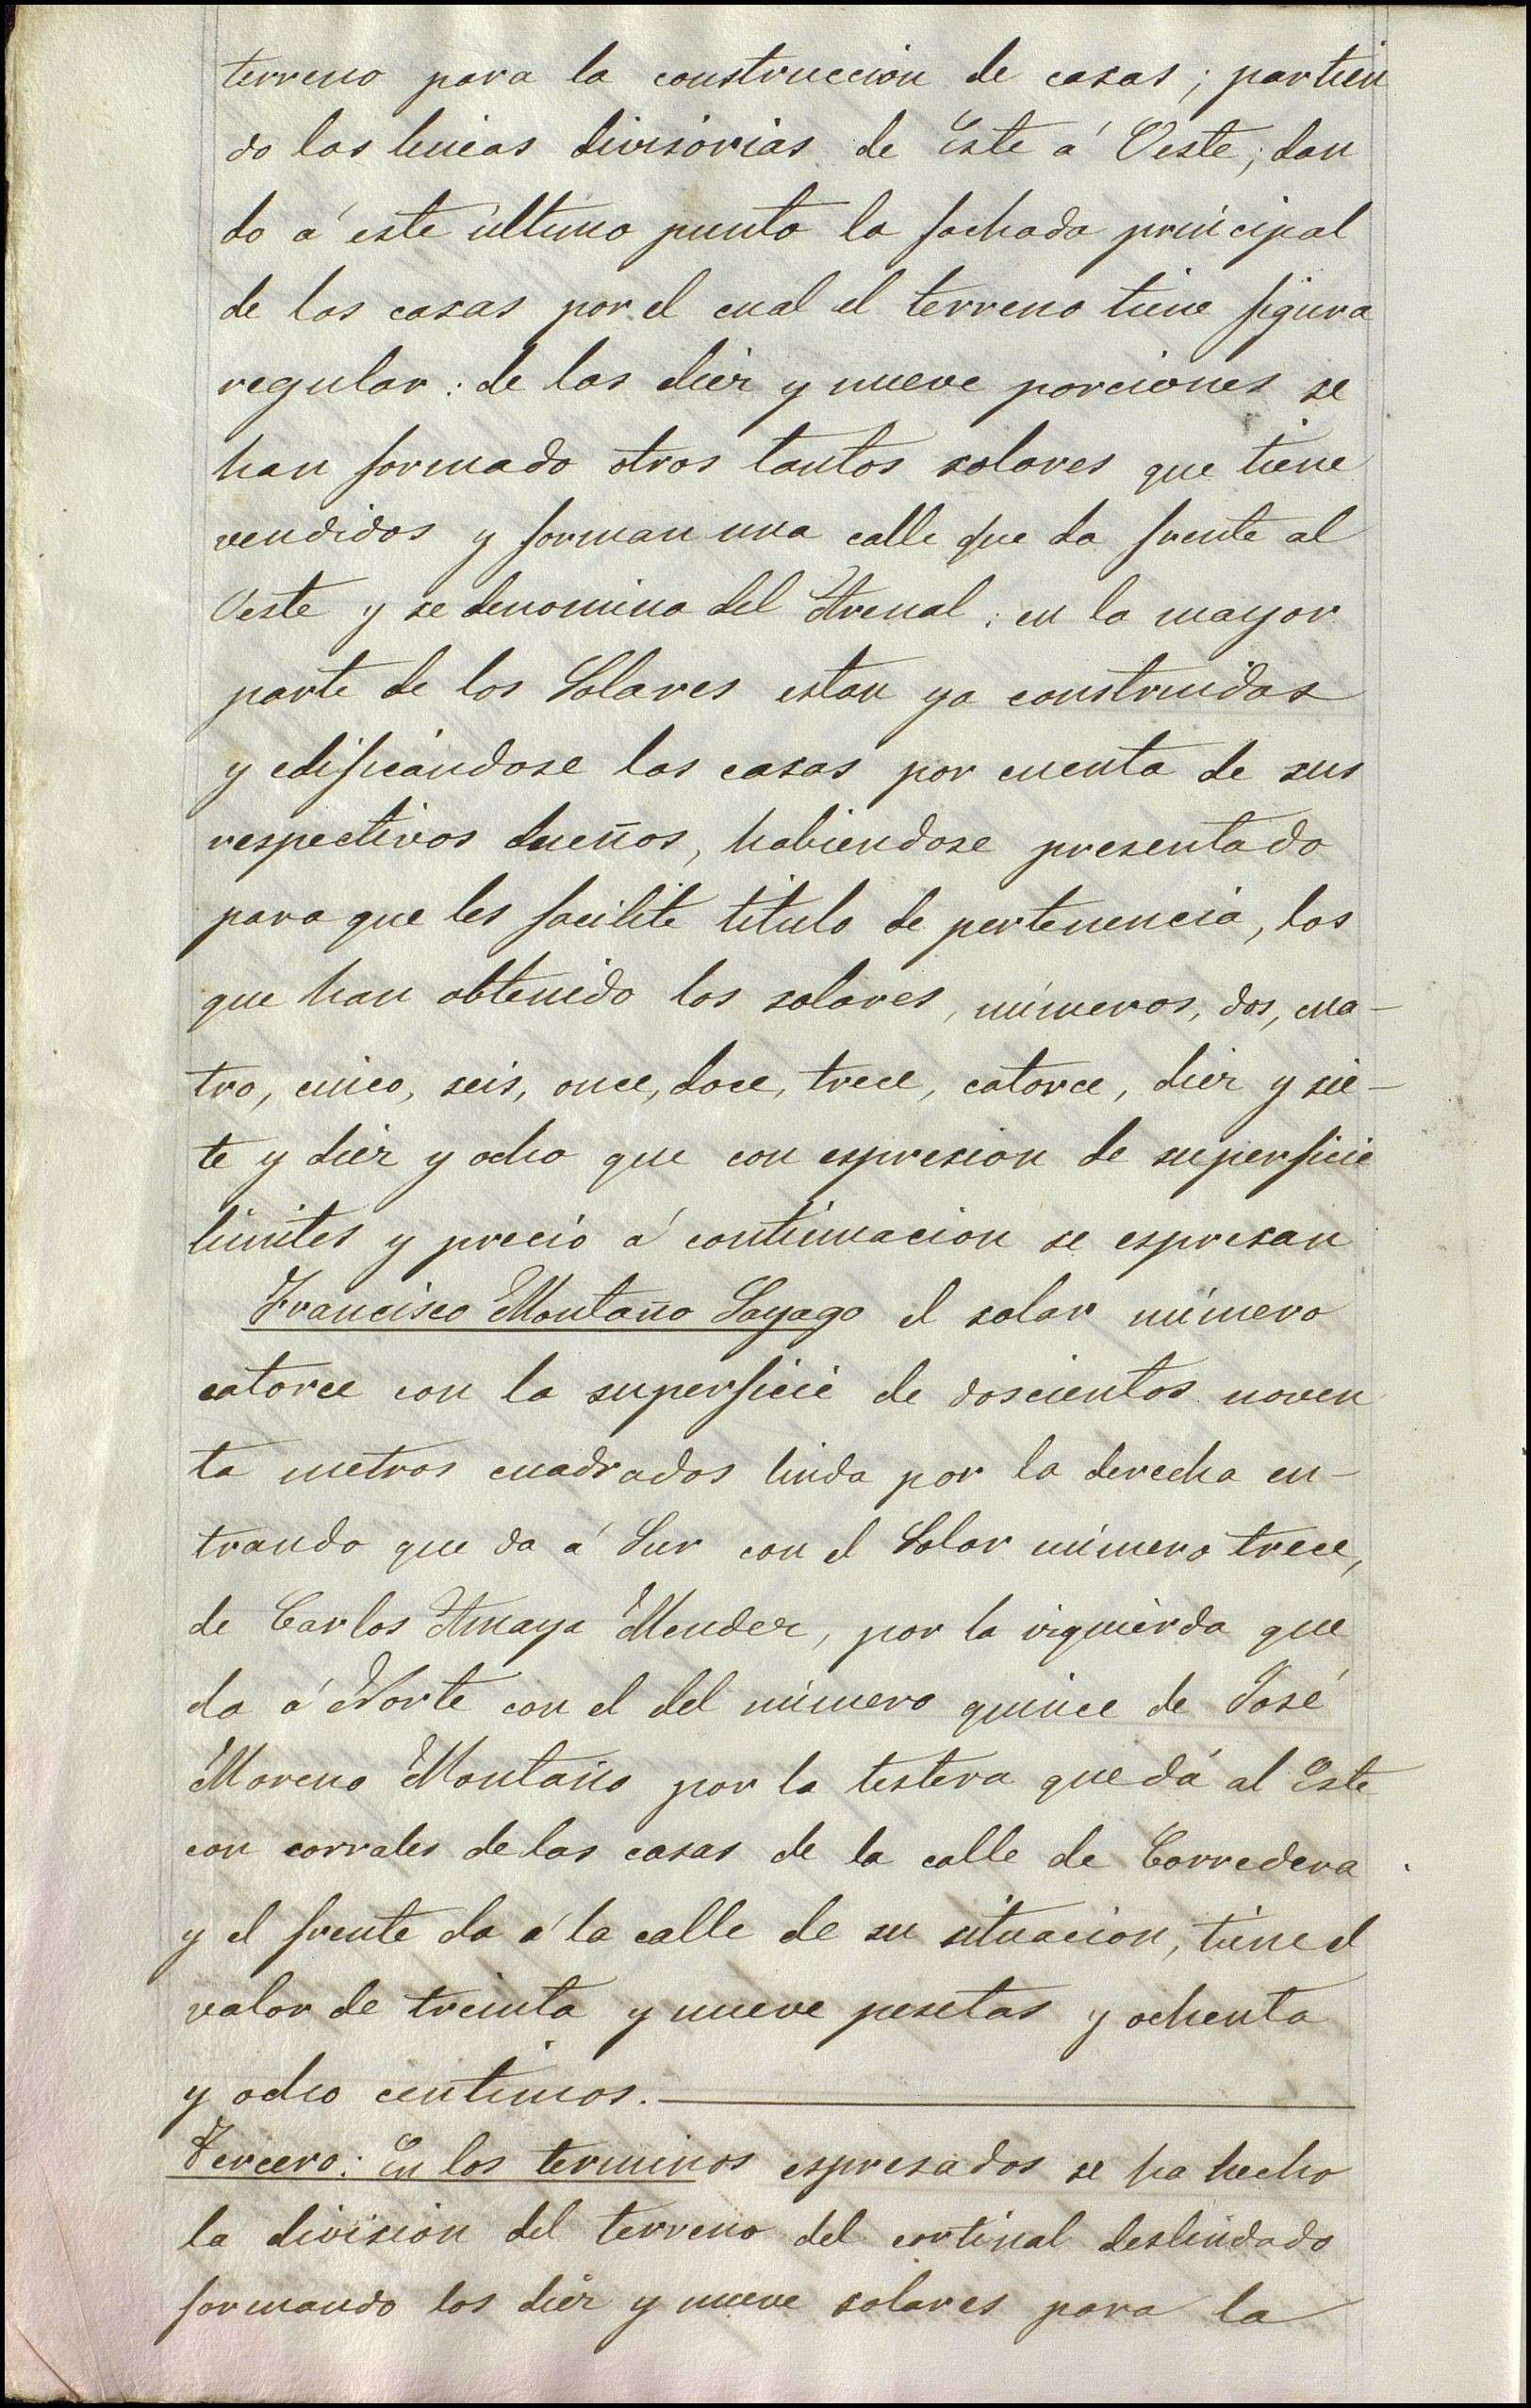 terreno para la construccion de casas; partien
do las lineas divisorias de Este á Oeste, dan
do á este último punto la fachada principal
de las casas por el cual el terreno tiene figura
regular: de las diez y nueve porciones se
han formado otros tantos solares que tiene
vendidos y forman una calle que da frente al
Oeste y se denomina del Arenal: en la mayor
parte de los Solares estan ya construidas
y edificándose las casas por cuenta de sus
respectivos dueños, habiendose presentado
para que les facilite titulo de pertenencia, los
que han obtenido los solares, números, dos, cua-
tro, cinco, seis, once, doce, trece, catorce, diez y sie-
te y diez y ocho que con espresion de superficie
limites y precio á continuacion se espresan
Francisco Montaño Sayago el solar número
catorce con la superficie de doscientos noven
ta metros cuadrados linda por la derecha en-
trando que da á Sur con el Solar número trece,
de Carlos Amaya Mendez, por la izquierda que
da á Norte con el del número quince de José
Moreno Montaño por la testera que dá al Este
con corrales de las casas de la calle de Corredera
y el frente da á la calle de su situacion, tiene el
valor de treinta y nueve pesetas y ochenta
y ocho centimos.
Tercero: En los terminos espresados se ha hecho
la division del terreno del cortinal deslindado
formando los diez y nueve solares para la